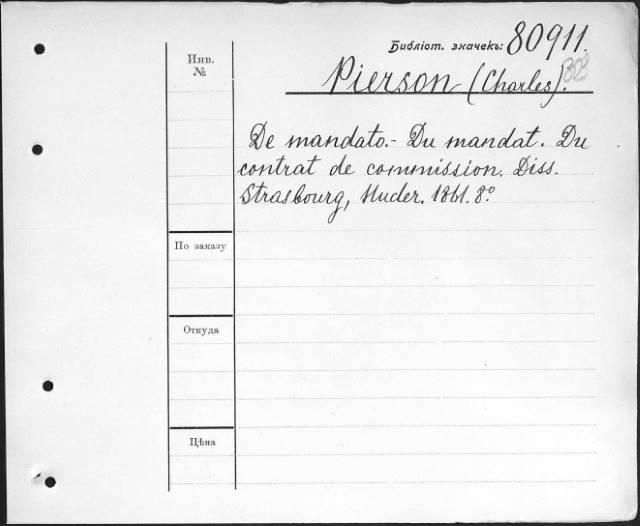 Библіот. значекъ: 80911.
Инв.
№
Pierson (Charles).
De mandato. - Du mandat. Du
contrat de commission. Diss.
Strasbourg, Huder. 1861. 8º
По заказу
Откуда
Цѣна